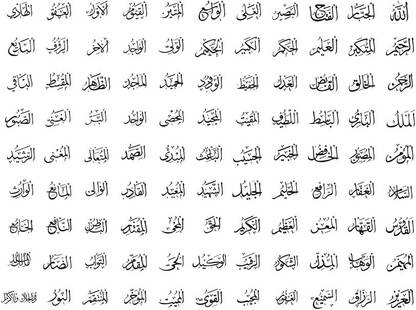 الله الجبار الفتاح البصير العلي الواسع المتين القيوم الأول العفو الهادي
الرحمن المتكبر العليم الحكم الكبير الحكيم الولي الواجد الآخر الرؤوف البديع
الرحيم الخالق القابض العدل الحفيظ الودود الحميد الماجد الظاهر المقسط الباقي
الملك البارئ الباسط اللطيف المقيت المجيد المحصي الواحد البر الغني الصبور
المؤمن المصور الخافض الخبير الحسيب الباعث المبدئ الصمد المتعالي المغني الرشيد
السلام الغفار الرافع الحليم الجليل الشهيد المعيد القادر الوالي المانع الوارث
القدوس القهار المعز العظيم الكريم الحق المحيي المقتدر الباطن النافع الجامع
المهيمن الوهاب المذل الشكور الرقيب الوكيل الحي المقدم التواب الضار مالك الملك
العزيز الرزاق السميع الغفور المجيب القوي المميت المؤخر المنتقم النور ذو الجلال والإكرام